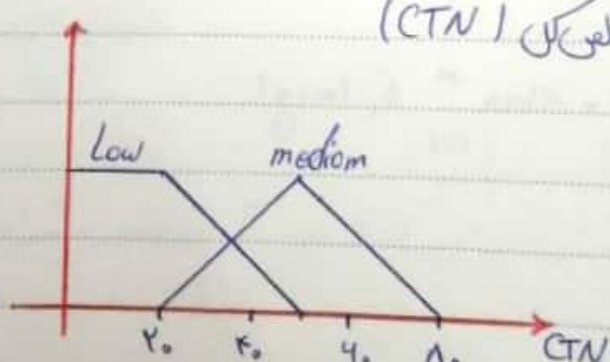 کل (CTN)
Low mediom
۲۰ ۴۰ ۶۰ ۸۰ CTN